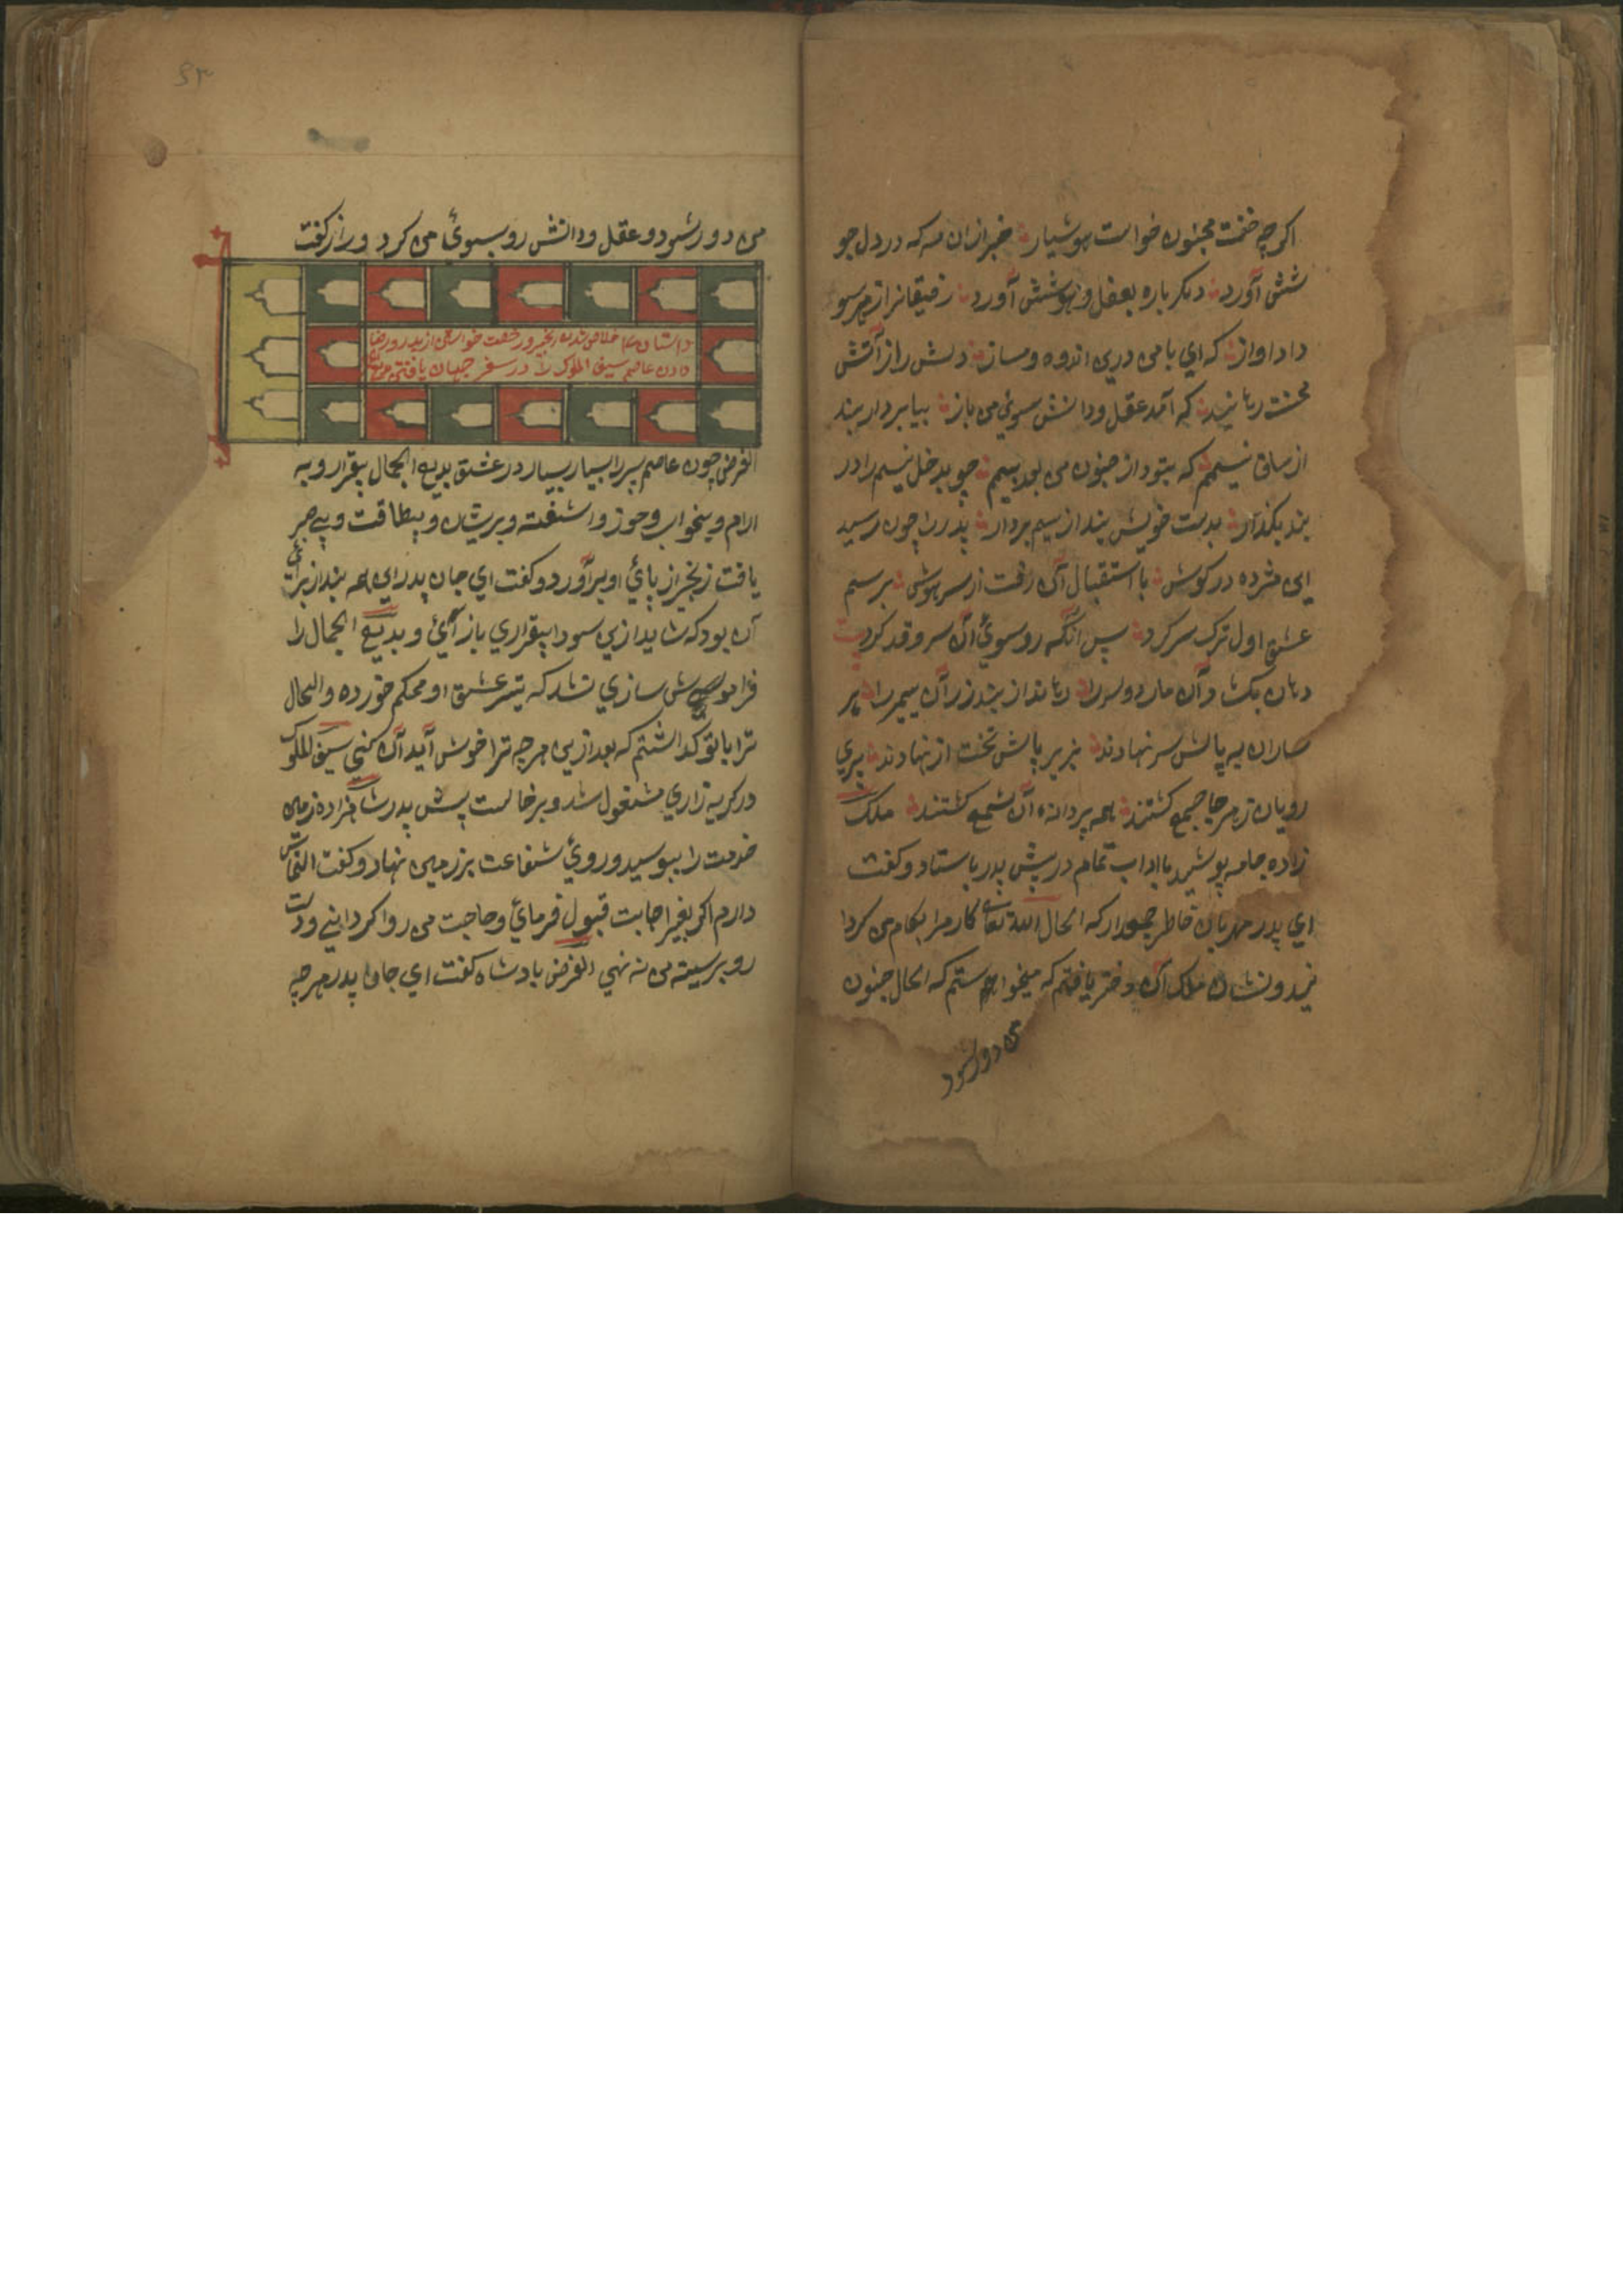 اکرچه خفت مجنون خواست هوشیار خبر زان مه که در دل جو
شش آورد دیکر باره بعقل و هوشش آورد رفیقانرا ز هر سو
داد اواز که ای بامن درین اندوه و مساز دلش را ز آتش
محنت رهانید که آمد عقل ودانش سوئی من باز بیا بردار بند
از ساق نسیمم که بتود از جنون من بود بیمم چو بدخل نیسم را در
بند بکذار بدست خویش بند از سیم بردار پدر را چون رسید
این مژده در کوش با استقبال آن رفت از سر هوش برسم
عشق اول ترک سر کرد پس آنکه رو سوئ آن سرو قد کرد
دهان بکشاد آن مار دوسر را رهاند از بند زر آن سیمبر را پر
صاران به پالش سر نهادند بزیر پاش تخت از نهادند پری
رویان ز هر جا جمع کشتند همه پروانهٔ آن شمع کشتند ملک
زاده جامه پوشید با اداب تمام در پش پدر باستاد وکفت
ای پدر مهربان خاطر جمعدار که الحال الله تعالی کار مرا بکام من کردا
نید و نشان ملک آن دختر یافتم که میخواهم ستم که الحال جنون
من دور شود
۶۳
من دور شود و عقل ودانش رو بسوئ من کرد و راز کفت
داستان خلاص شدن از زنجیر و رخصت خواستن از پدر و رضا
دادن عاصم سیف الملوک را در سفر جهان یافتن
الغرض چون عاصم پسر را بسیار بسیار در عشق بدیع الجمال بیقرار و به
ارام و بیخواب وخور و اشفته و پریشان و بیطاقت و بی صبر
یافت زنجیر از پائ او بر آورد و کفت ای جان پدر این همه بند از برائ
آن بود که شاید از این سودا بیقراری باز آئ و بدیع الجمال را
فراموش سازی نشد که تیر عشق او محکم خورده والحال
ترا باتو کذاشتم که بعد ازین هرچه ترا خوش آید آن کنی سیف الملوک
در کریه زاری مشغول شد و برخاست پش پدر شاهزاده زمین
خدمت را ببوسید و روئ شفاعت بر زمین نهاد وکفت التماس
دارم اکر بغیر اجابت قبول فرمائ و حاجت من روا کردانی و دست
رو بر سینه من نه نهی الغرض پادشاه کفت ای جان پدر هرچه